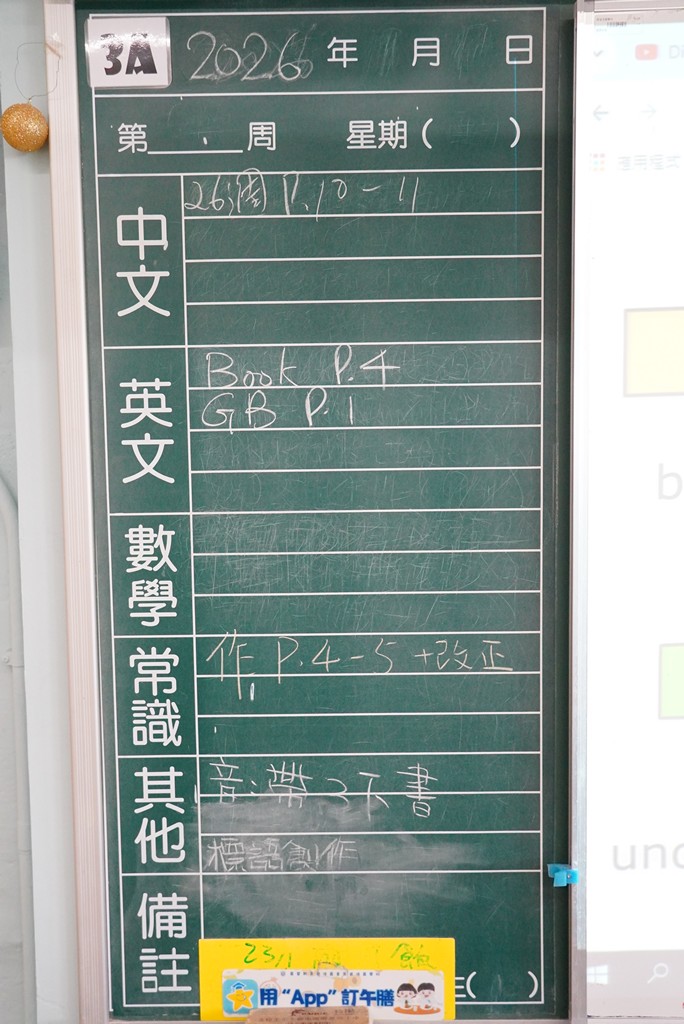 3A 2026 年 月 日
第 周 星期( )
中文
26週 P.10-11
英文
Book P.4
GB P.1
數學
常識
作 P.4-5 +改正
其他
音:帶3下書
標語創作
備註
23/1
用"App"訂午膳
( )
b
und